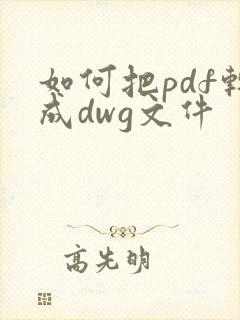 如何把pdf转
成dwg文件
高先明